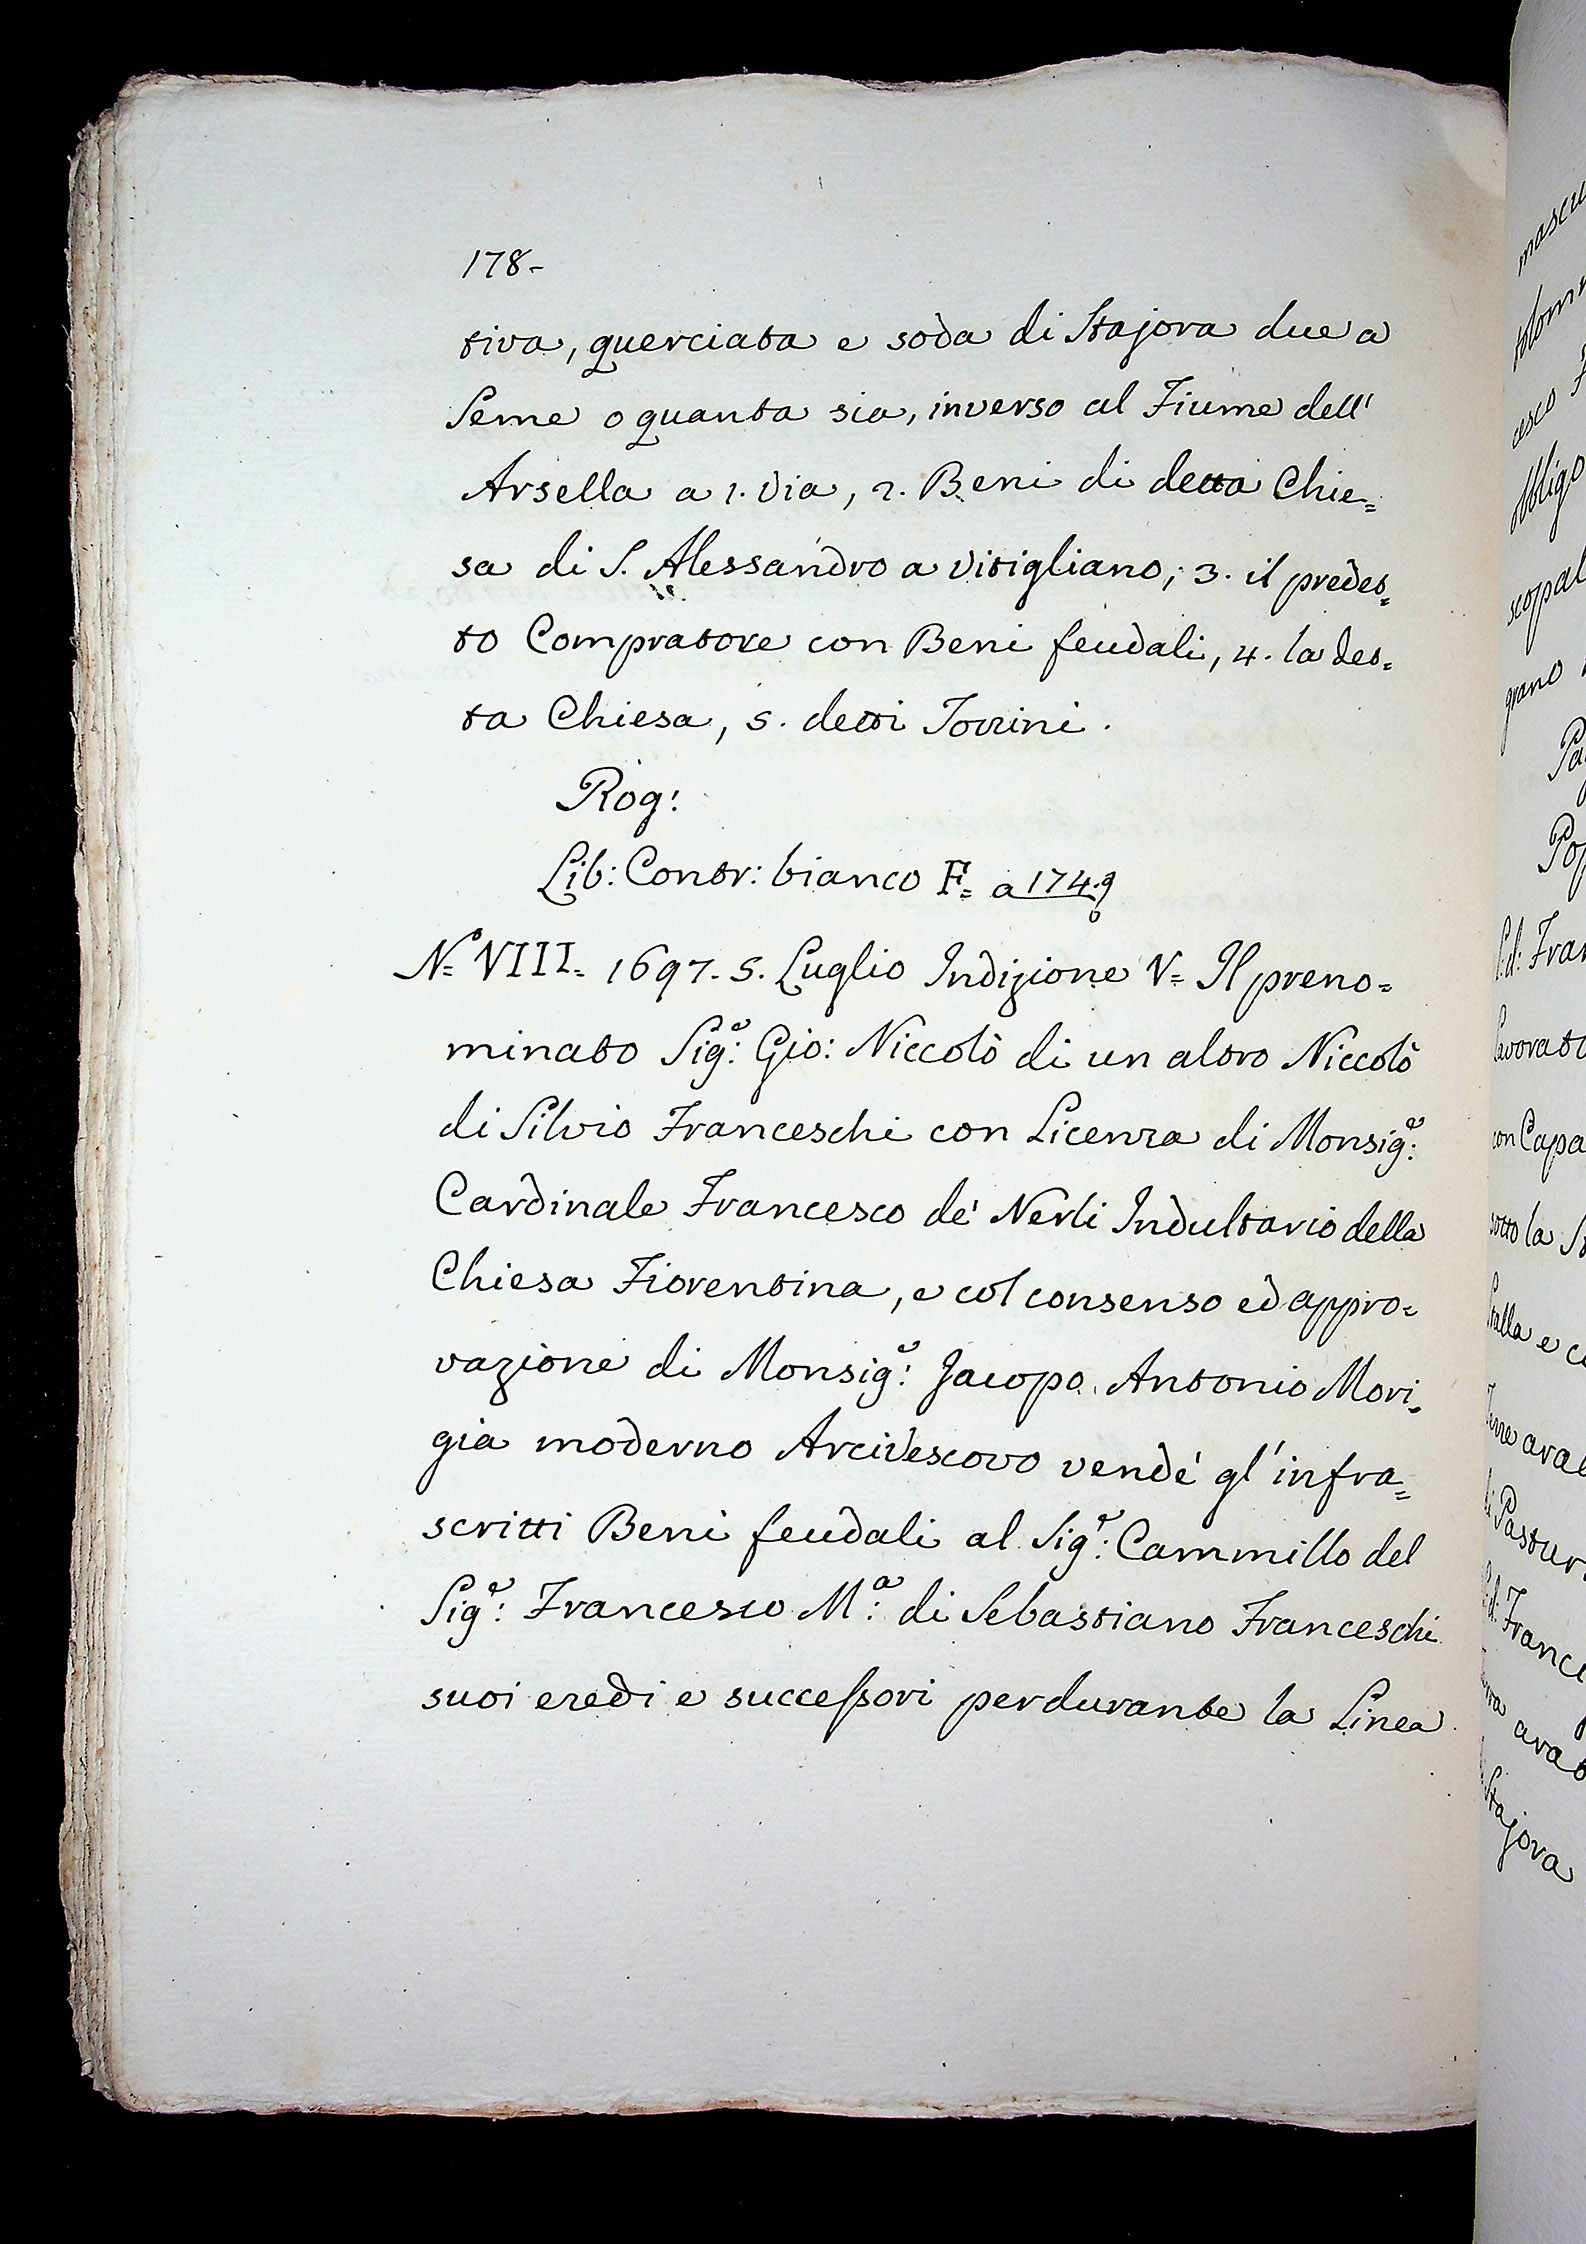 178-
tiva, querciata e soda di Stajora due a
Seme o quanta sia, inverso al Fiume dell'
Arsella a 1. Via, 2. Beni di detta Chie=
sa di S. Alessandro a Vitigliano; 3. il predet=
to Compratore con Beni feudali, 4. la det=
ta Chiesa, 5. detti Torrini.
Rog:
Lib: Contr: bianco F= a 174.
N.º VIII= 1697. 5. Luglio Indizione V= Il preno=
minato Sig.e: Gio: Niccolò di un altro Niccolò
di Silvio Franceschi con Licenza di Monsig.e:
Cardinale Francesco de' Nerli Indultario della
Chiesa Fiorentina, e col consenso ed appro=
vazione di Monsig.e: Jacopo Antonio Mori=
gia moderno Arcivescovo vendé gl'infra=
scritti Beni feudali al Sig.e: Cammillo del
Sig.e: Francesco M.a: di Sebastiano Franceschi
suoi eredi e successori perdurante la Linea
mascu
tolom
cesco F
obbligo
scopal
grano
Pa
Pop
S.d: Fran
lavorat
con Capa
sotto la St
Stalla e c
Terre ara
di Pastur
S.d: France
arat
Stajora